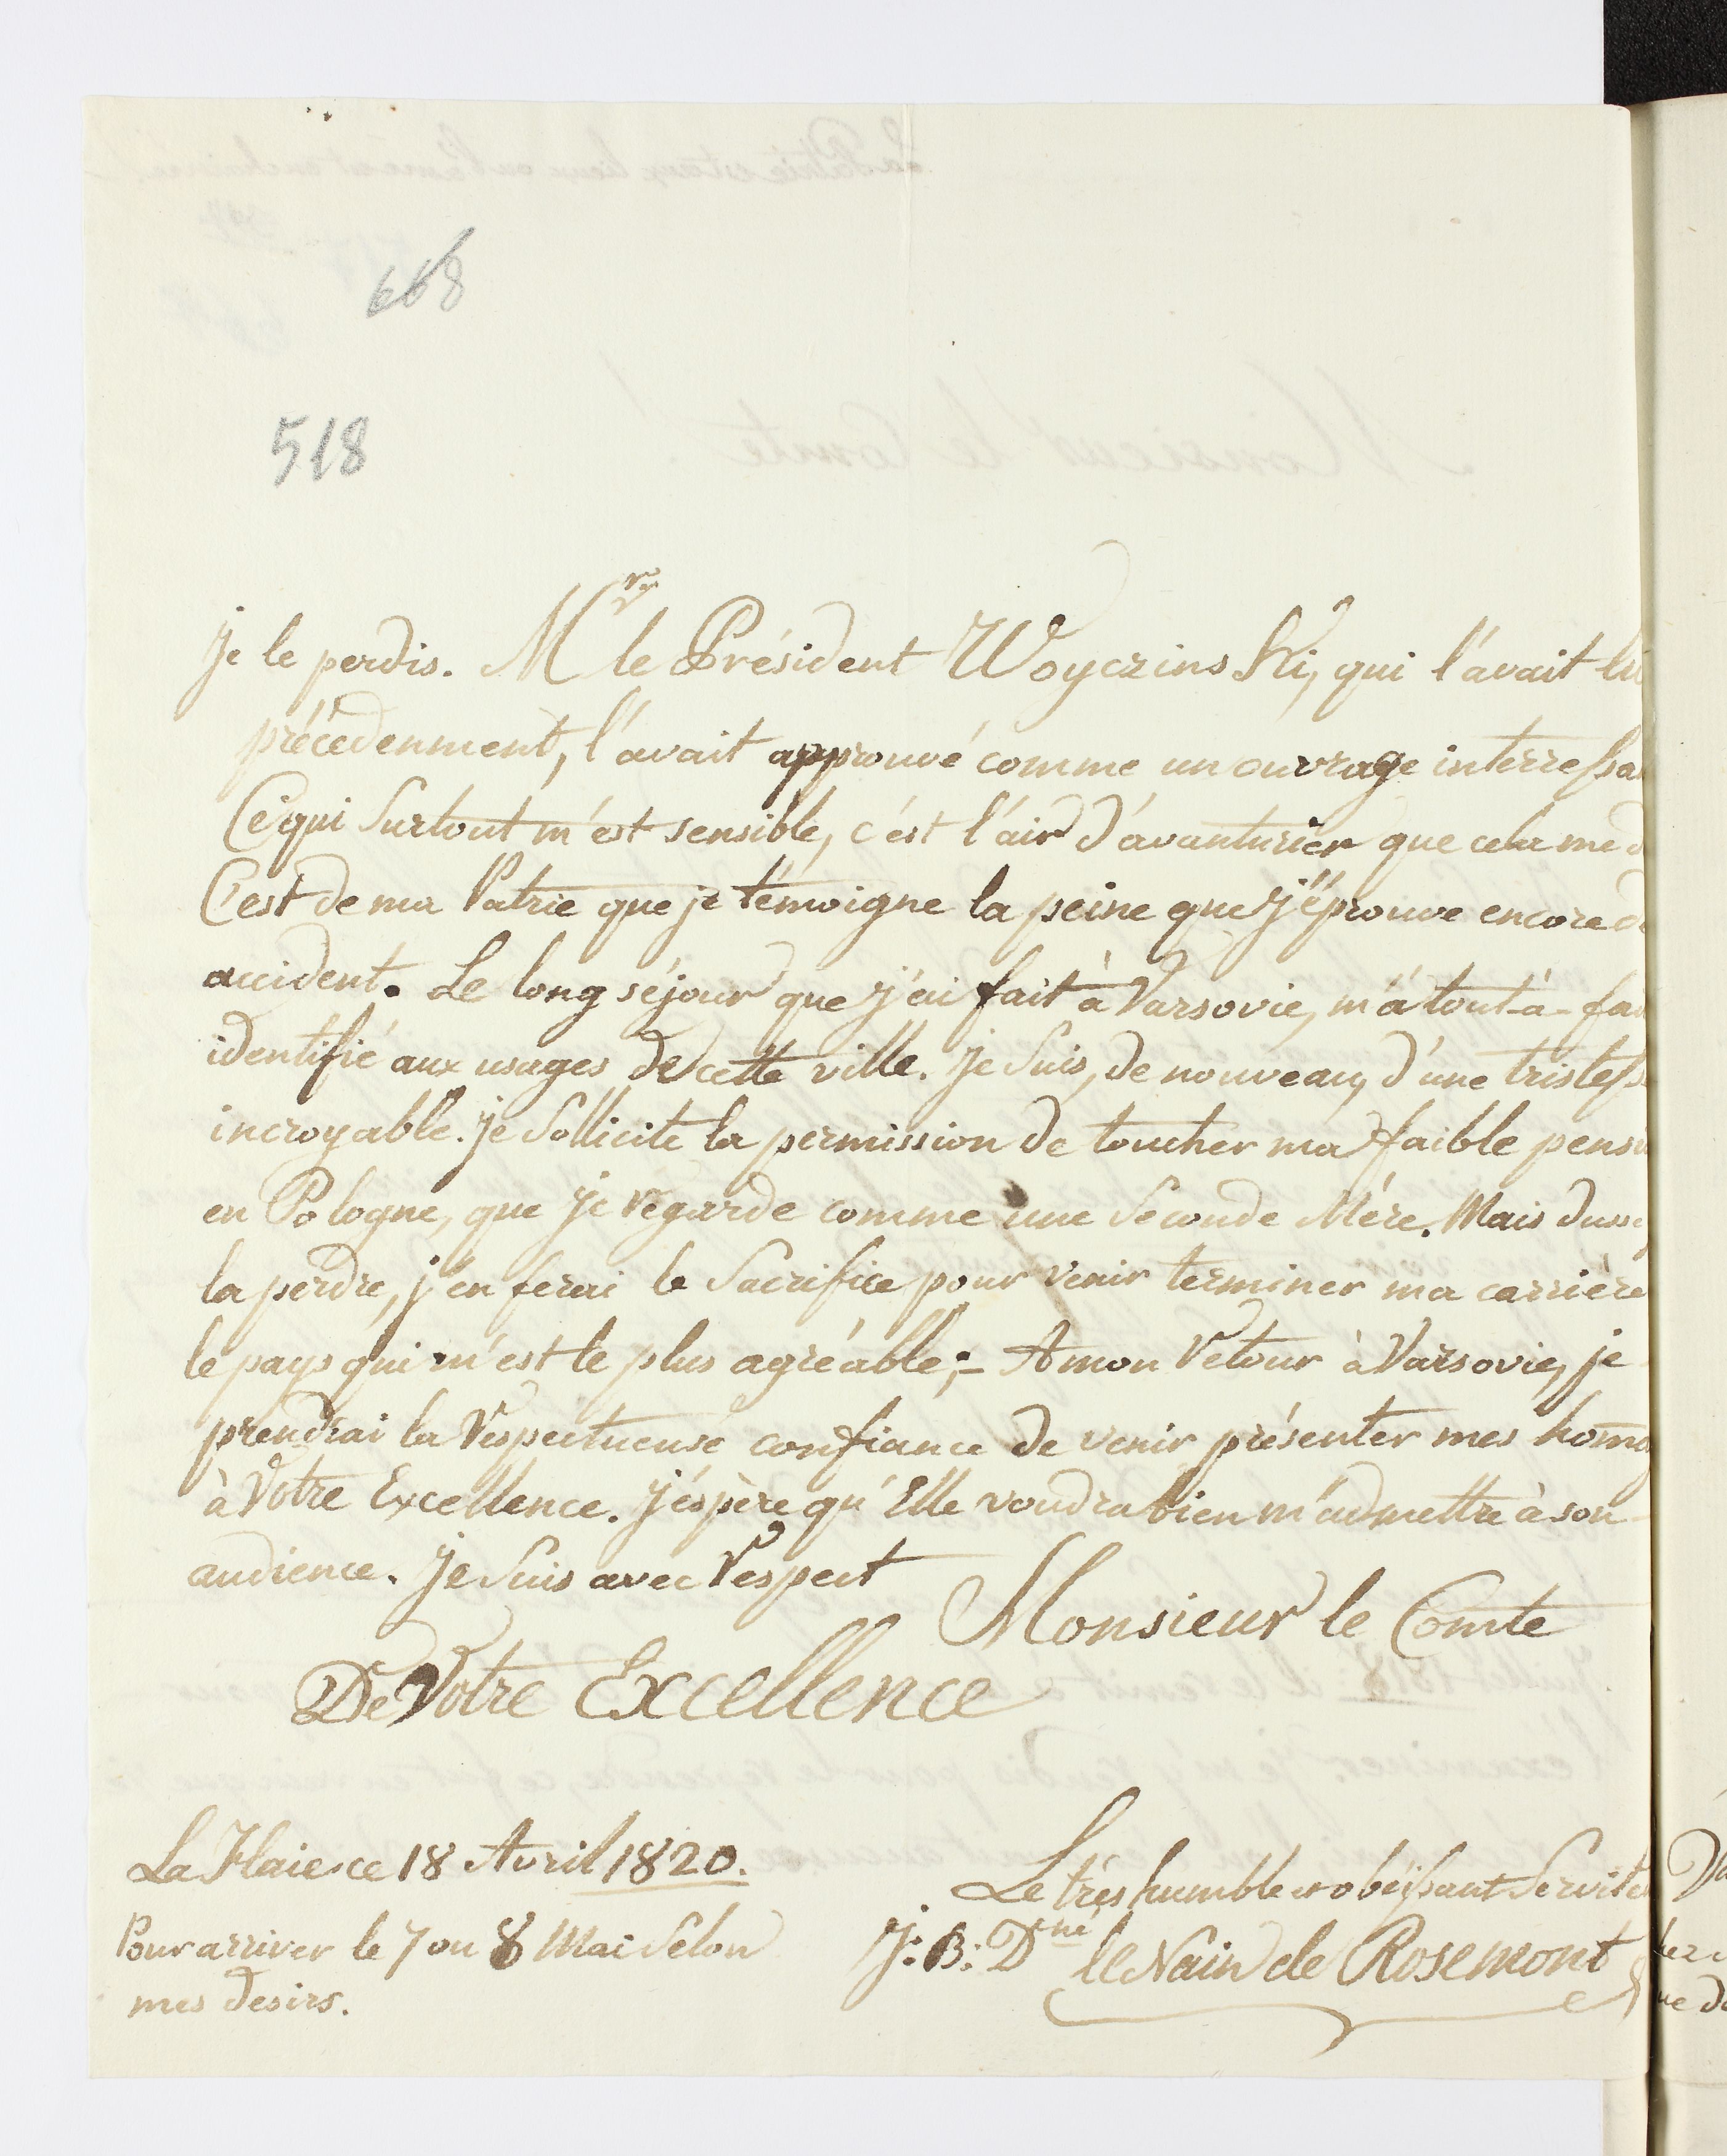 668
518
je le perdis. Mr le Président Woyczinski, qui l'avait lu
précédenment, l'avait approuvé comme un ouvrage interressa
Ce qui surtout m'est sensible, c'est l'air d'avanturier que cela me d
C'est de ma Patrie que je témoigne la peine que j'éprouve encore d
accident. Le long séjour que j'ai fait à Varsovie, m'a tout-à-fai
identifié aux usages de cette ville. Je suis, de nouveau, d'une tristess
incroyable. je sollicite la permission de toucher ma faible pens
en Pologne, que je regarde comme une seconde Mére. Mais dussé
la perdre, j'en ferai le sacrifice pour venir terminer ma carrière
le pays qui m'est le plus agréable;- A mon retour à Varsovie, je
prendrai la respectueuse confiance de venir présenter mes homa
à Votre Excellence. j'éspère qu'Elle voudra bien m'admettre à son
audience. je suis avec respect
Monsieur le Comte
De Votre Excellence
La Haie ce 18 Avril 1820.
Pour arriver le 7 ou 8 Mai selon
mes desirs.
Le très humble et obéissant Servite
J: B: Dné le Nain de Rosemont